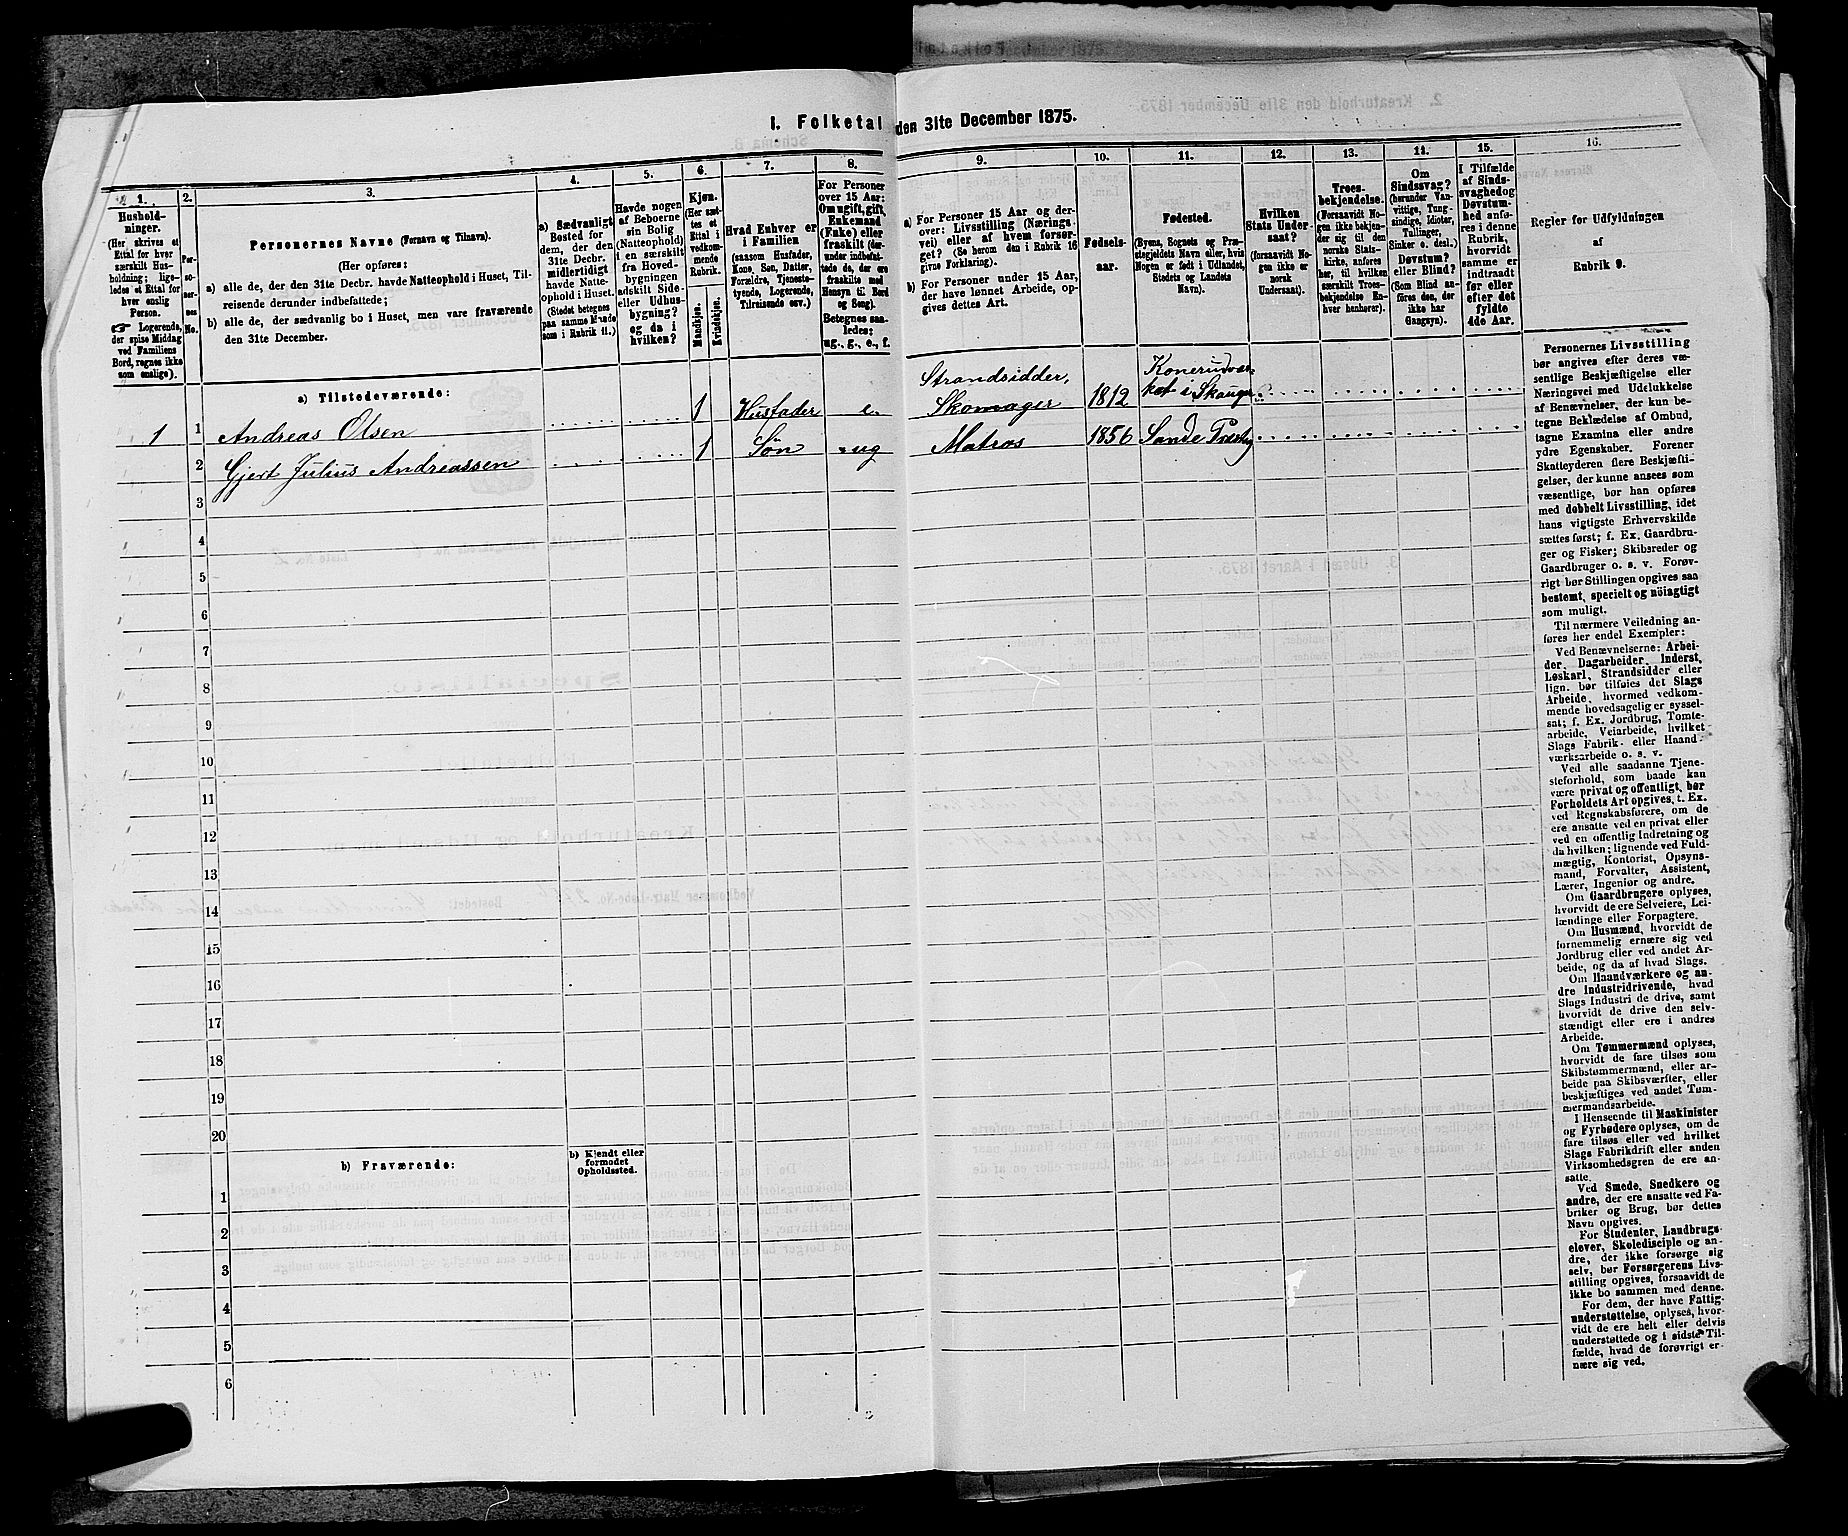 1. Folketal den 31te December 1875.
1.
Hushold-
ninger.
(Her skrives et
Ettal for hver
særskilt Hus-
holdning; lige-
ledes et Ettal for
hver enslig
Person.
☞ Logerende,
der spise Middag
ved Familiens
Bord, regnes ikke
som enslige).
2.
Per-
so-
ner-
nes
No.
3.
Personernes Navne (Fornavn og Tilnavn).
(Her opføres:
a) alle de, der den 31te Decbr. havde Natteophold i Huset, Til-
reisende derunder indbefattede;
b) alle de, der sædvanlig bo i Huset, men vare fraværende
den 31te December.
4.
a) Sædvanligt
Bosted for
dem, der den
31te Decbr.
midlertidigt
havde Natte-
ophold i Huset.
(Stedet betegnes
paa samme Maade
som i Rubrik 11.)
5.
Havde nogen
af Beboerne
sin Bolig
(Natteophold)
i en særskilt
fra Hoved-
bygningen
adskilt Side-
eller Udhus-
bygning?
og da i
hvilken?
6.
Kjøn.
(Her sæt-
tes et
Ettal i
vedkom-
mende
Rubrik.
Mandkjøn.
Kvindekjøn.
7.
Hvad Enhver er
i Familien
(saasom Husfader,
Kone, Søn, Datter,
Forældre, Tjeneste-
tyende, Logerende,
Tilreisende osv.)
8.
For Personer
over 15 Aar:
Om ugift, gift,
Enkemand
(Enke) eller
fraskilt (der-
under indbefat-
tede de, der ere
fraskilte med
Hensyn til Bord
og Seng).
Betegnes saa-
ledes:
ug., g., e., f.
9.
a) For Personer 15 Aar og der-
over: Livsstilling (Nærings-
vei) eller af hvem forsør-
get? (Se herom den i Rubrik 16
givne Forklaring).
b) For Personer under 15 Aar,
der have lønnet Arbeide, op-
gives dettes Art.
10.
Fødsels-
aar.
11.
Fødested.
(Byens, Sognets og Præ-
stegjeldets Navn eller, hvis
Nogen er født i Udlandet,
Stedets og Landets
Navn).
12.
Hvilken
Stats Under-
saat?
(forsaavidt No-
gen ikke er
norsk
Undersaat).
13.
Troes-
bekjendelse.
(Forsaavidt No-
gen ikke bekjen-
der sig til den
norske Stats-
kirke, anføres
her, til hvilken
særskilt Troes-
bekjendelse En-
hver henhører).
14.
Om
Sindssvag?
(herunder Van-
vittige, Tung-
sindige, Idioter,
Tullinger,
Sinker o. desl.)
Døvstum?
eller Blind?
(Som Blind an-
føres den, der
ikke har
Gangsyn).
15.
I Tilfælde
af Sinds-
svaghed og
Døvstum-
hed anfø-
res i denne
Rubrik,
hvorvidt
samme er
indtraadt
før eller
efter det
fyldte
4de Aar.
16.
Regler for Udfyldningen
af
Rubrik 9.
a) Tilstedeværende:
1 1 Andreas Olsen 1 Husfader e. Strandsidder, Skomager 1812 Konerudvar-
ket i Skauger
2 Gjert Julius Andreassen 1 Søn ug Matros 1856 Sande Præstg
3
4
5
6
7
8
9
10
11
12
13
14
15
16
17
18
19
20
b) Fraværende:
b) Kjendt eller
formodet
Opholdssted.
1
2
3
4
5
6
Personernes Livsstilling
bør angives efter deres væ-
sentlige Beskjæftigelse eller
Næringsvei med Udelukkelse
af Benævnelser, der kun be-
tegne Beklædelse af Ombud,
tagne Examina eller andre
ydre Egenskaber. Forener
Skatteyderen flere Beskjæfti-
gelser, der kunne ansees som
væsentlige, bør han opføres
med dobbelt Livsstilling, idet
hans vigtigste Erhvervskilde
sættes først; f. Ex. Gaardbru-
ger og Fisker; Skibsreder og
Gaardbruger o. s. v. Forøv-
rigt bør Stillingen opgives saa
bestemt, specielt og nöiagtigt
som muligt.
Til nærmere Veiledning an-
føres her endel Exempler:
Ved Benævnelserne: Arbei-
der, Dagarbeider, Inderst,
Løskarl, Strandsidder eller
lign. bør tilføies det Slags
Arbeide, hvormed vedkom-
mende hovedsagelig er syssel-
sat; f. Ex. Jordbrug, Tomte-
arbeide, Veiarbeide, hvilket
Slags Fabrik- eller Haand-
værksarbeide o. s. v.
Ved alle saadanne Tjene-
steforhold, som baade kan
være privat og offentligt, bør
Forholdets Art opgives, t. Ex.
ved Regnskabsførere, om de
ere ansatte ved en privat eller
ved en offentlig Indretning og
da hvilken; lignende ved Fuld-
mægtig, Kontorist, Opsyns-
mand, Forvalter, Assistent,
Lærer, Ingeniør og andre.
Om Gaardbrugere oplyses,
hvorvidt de ere Selveiere, Lei-
lændinge eller Forpagtere.
Om Husmænd, hvorvidt de
fornemmelig ernære sig ved
Jordbrug eller ved andet Ar-
beide, og da af hvad Slags.
Om Haandværkere og an-
dre Industridrivende, hvad
Slags Industri de drive, samt
hvorvidt de drive den selv-
stændigt eller ere i andres
Arbeide.
Om Tømmermænd oplyses,
hvorvidt de fare tilsøs som
Skibstømmermænd, eller ar-
beide paa Skibsværfter, eller
beskjæftiges ved andet Tøm-
mermandsarbeide.
I Henseende til Maskinister
og Fyrbødere oplyses, om de
fare tilsøs eller ved hvilket
Slags Fabrikdrift eller anden
Virksomhedsgren de ere an-
satte.
Ved Smede, Snedkere og
andre, der ere ansatte ved Fa-
briker og Brug, bør dettes
Navn opgives.
For Studenter, Landbrugs-
elever, Skoledisciple og an-
dre, der ikke forsørge sig
selv, bør Forsørgerens Livs-
stilling opgives, forsaavidt de
ikke bo sammen med denne.
For dem, der have Fattig-
understøttelse, oplyses, hvor-
vidt de ere helt eller delvis
understøttede og i sidste Til-
fælde, hvad de forøvrigt er-
nære sig ved.